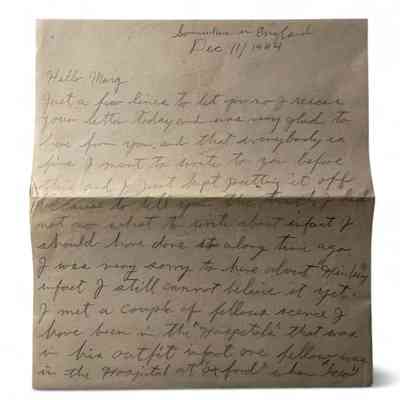 Somewhere in England
Dec 11/1944
Hello Marg
Just a few lines to let you no I receive
your letter today and was very glad to
here from you and that everybody is
fine I meant to write to you before
this and I just kept putting it off
because to tell you the truth I
not no what to write about infact I
should have done it along time ago
I was very sorry to here about
infact I still cannot believe it yet.
I met a couple of fellows scence I
have been in the "Hospitals" that was
in his outfit infact one fellow was
in the Hospital at "Oxford" when